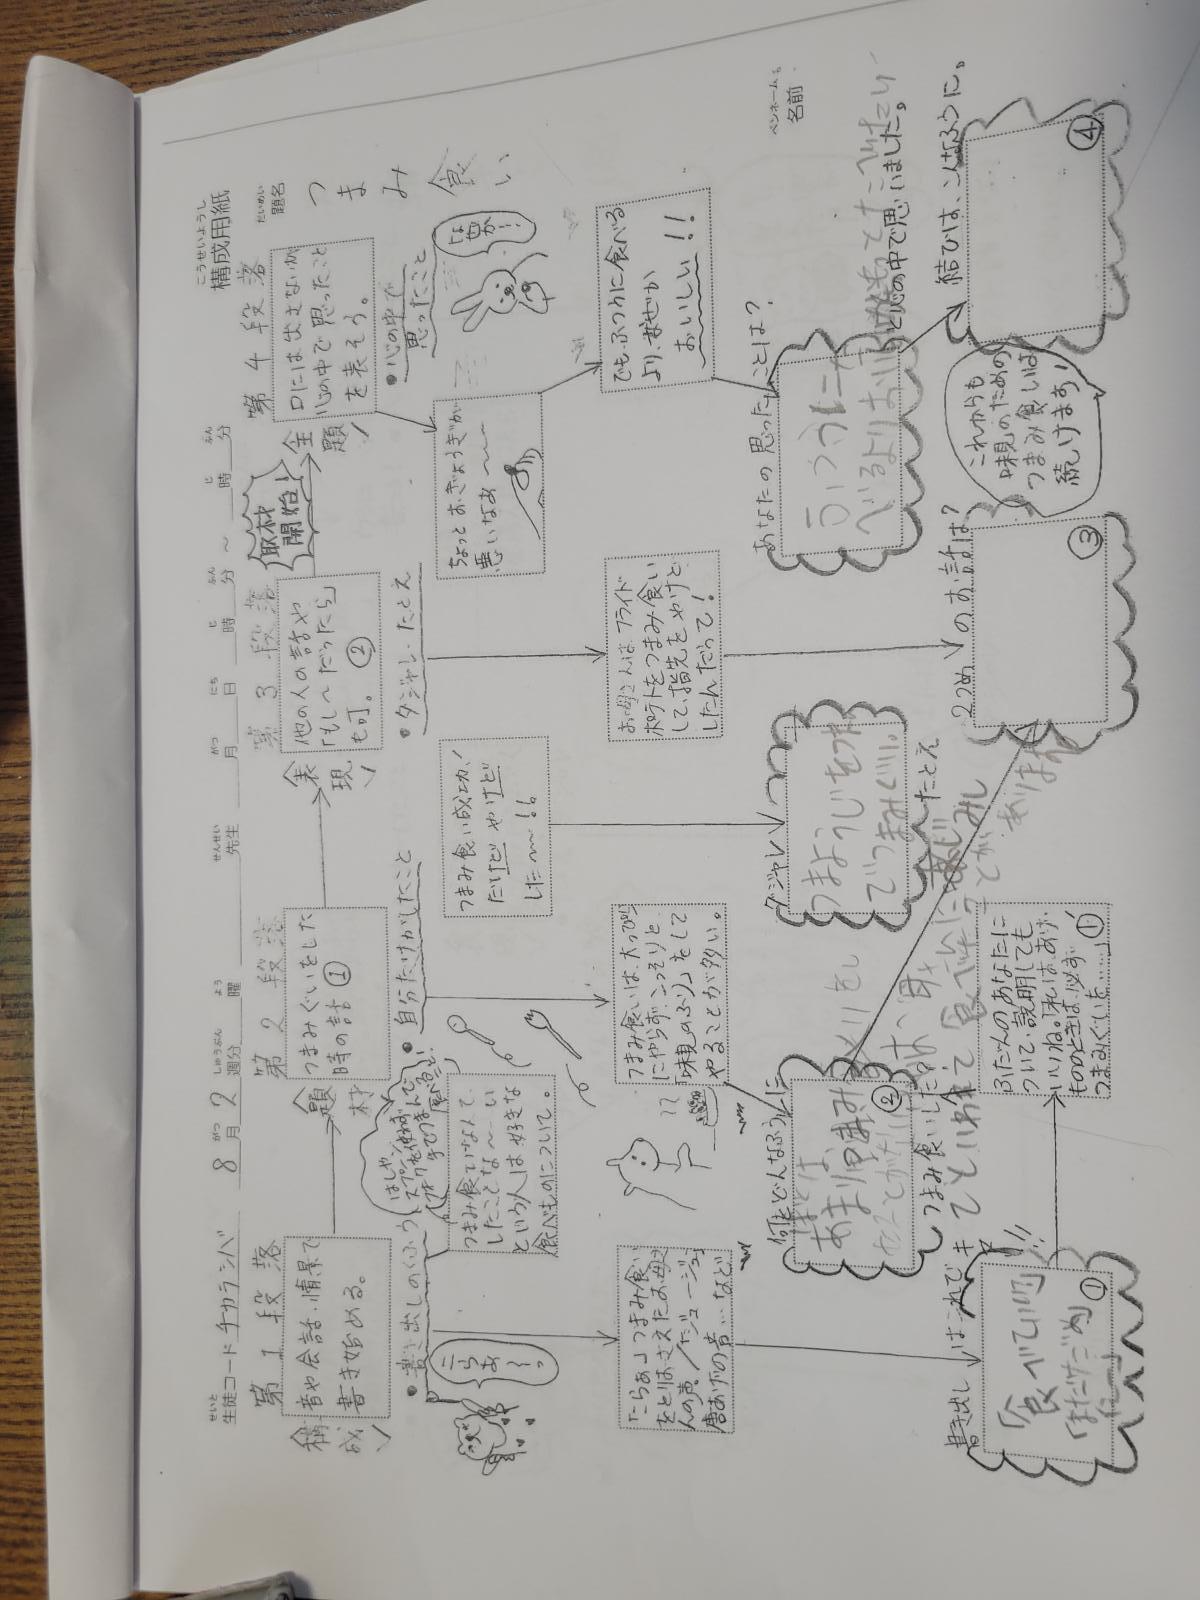 構成用紙
こうせいようし
題名
だいめい
つまみ食い
ペンネームも
名前
生徒コード
せいと
チカラシバ
8月2週分
がつ
しゅうぶん
曜
よう
先生
せんせい
月
がつ
日
にち
時
じ
分
ふん
〜
時
じ
分
ふん
第1段落
構成
音や会話・情景で
書き始める。
・書き出しのくふう
こらあ〜っ
つまみ食いなんて、
したことな〜い
という人は好きな
食べものについて。
「こらぁ」つまみ食い
をとりおさえたお母さ
んの声/「ジュージュー」
唐あげの音…など
書き出しはこれでキマリ!!
「食べていい？
①
ふだんのあなたに
ついて、説明しても
いいね。「私は、あげ
もののときは、必ず
つまみぐいを……」①'
第2段落
題材
つまみぐいをした
時の話①
・自分だけがしたこと
はしや
スプーン、
フォークを使わず
手でつまんで
食べること!
つまみ食いは、大っぴら
にやらず、こっそりと
「味見のふり」をして
やることが多い。
何をどんなふうに
ぼくは、
②
つまみ食いしたの？
第3段落
表現
他の人の話や
「もし〜だったら」
も可。②
・ダジャレ・たとえ
つまみ食い成功！
だけどやけど
した〜!!
お母さんはフライド
ポテトをつまみ食い
して、指先をやけど
したんだって！
ダジャレ
つまようじをつか
でつまみぐい。
たとえ
2つめのお話は？
③
取材開始！
第4段落
全題
口には出さないが
心の中で思ったこと
を表そう。
・心の中で
思ったこと
ちょっとおぎょうぎが
悪いなあ〜〜
でも、ふつうに食べる
より、なぜか
おいしい!!
あなたの思ったことは？
と心の中で思いました。
結びは、こんなふうに。
これからも
味見のための
つまみ食いは
続けます！
④